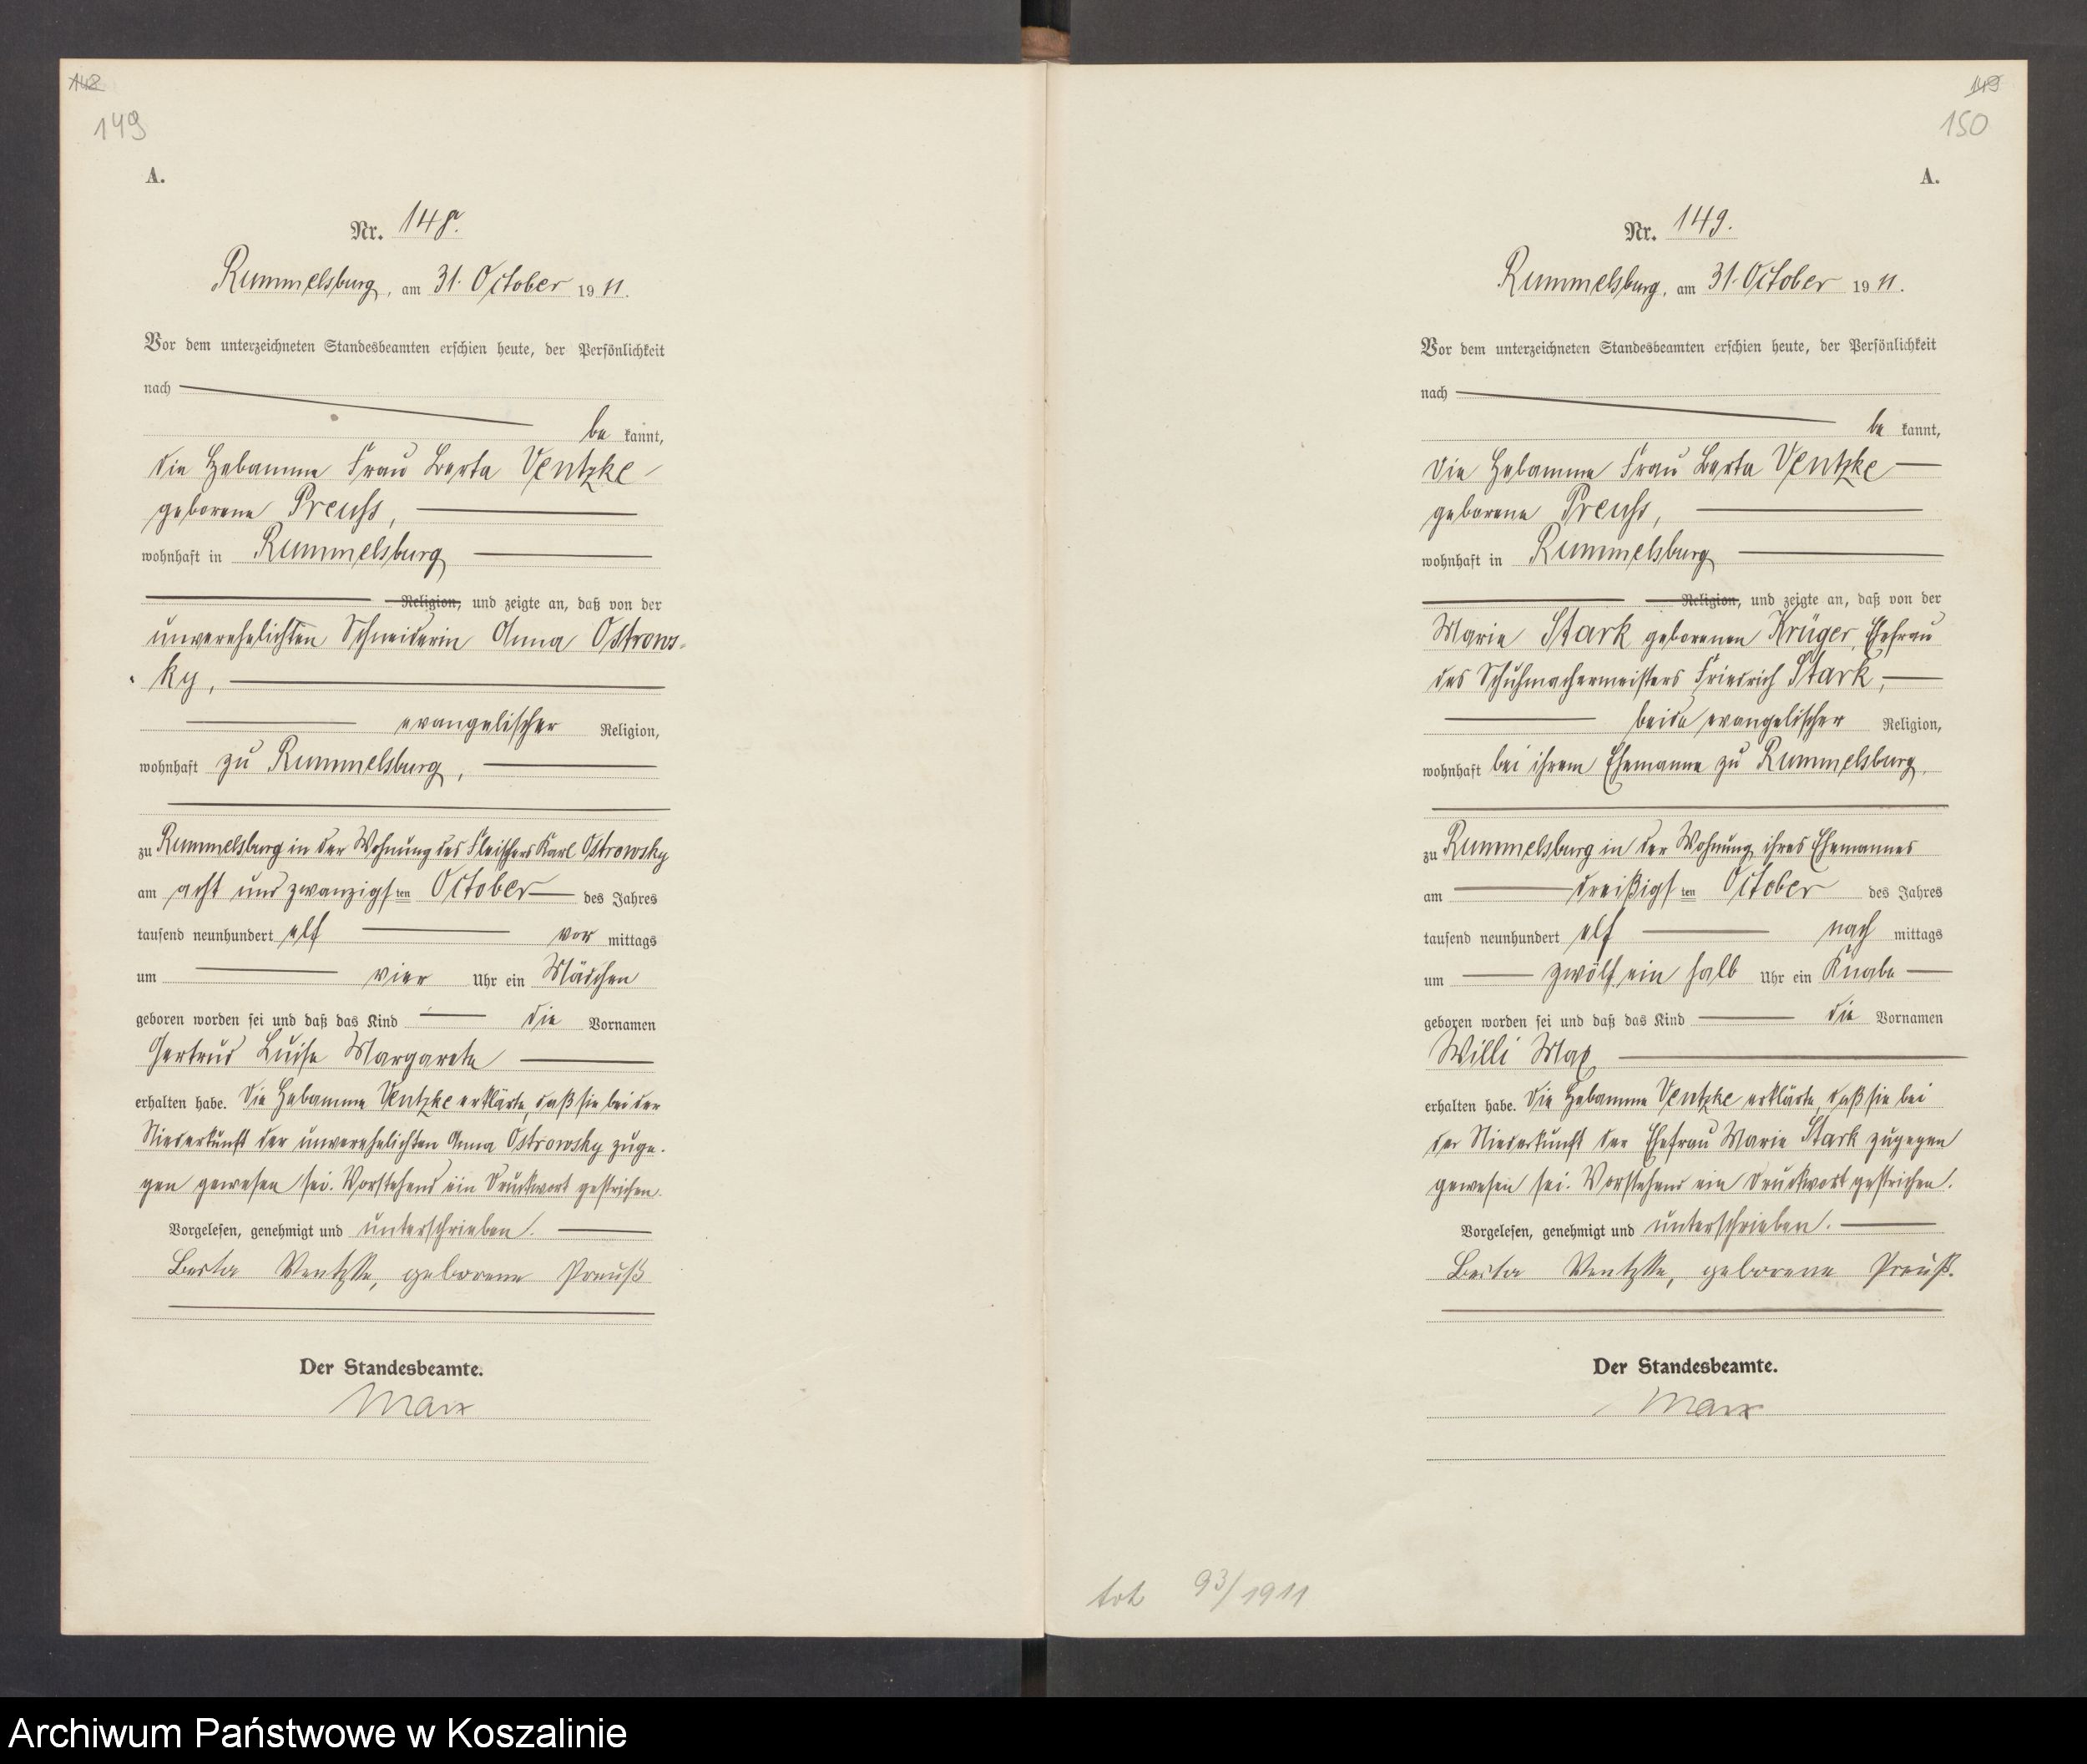 142
149
A.
Nr. 148.
Rummelsburg, am 31. October 1911.
Vor dem unterzeichneten Standesbeamten erschien heute, der Persönlichkeit
nach
be kannt,
die Hebamme Frau Berta Ventzke
geborene Preuss,
wohnhaft in Rummelsburg
Religion, und zeigte an, daß von der
unverehelichten Schneiderin Anna Ostrows-
ky,
evangelischer Religion,
wohnhaft zu Rummelsburg,
zu Rummelsburg in der Wohnung des Fleischers Karl Ostrowsky
am acht und zwanzigsten October des Jahres
tausend neunhundert elf vor mittags
um vier Uhr ein Mädchen
geboren worden sei und daß das Kind die Vornamen
Gertrud Luise Margarete
erhalten habe. Die Hebamme Ventzke erklärte, daß sie bei der
Niederkunft der unverehelichten Anna Ostrowsky zuge-
gen gewesen sei. Vorstehend ein Druckwort gestrichen.
Vorgelesen, genehmigt und unterschrieben.
Berta Ventzke, geborene Preuß
Der Standesbeamte.
Marx
149
150
A.
Nr. 149.
Rummelsburg, am 31. October 1911.
Vor dem unterzeichneten Standesbeamten erschien heute, der Persönlichkeit
nach
be kannt,
die Hebamme Frau Berta Ventzke
geborene Preuss,
wohnhaft in Rummelsburg
Religion, und zeigte an, daß von der
Marie Stark geborenen Krüger, Ehefrau
des Schuhmachermeisters Friedrich Stark,
beide evangelischer Religion,
wohnhaft bei ihrem Ehemanne zu Rummelsburg,
zu Rummelsburg in der Wohnung ihres Ehemannes
am dreißigsten October des Jahres
tausend neunhundert elf nach mittags
um zwölf ein halb Uhr ein Knabe
geboren worden sei und daß das Kind die Vornamen
Willi Max
erhalten habe. Die Hebamme Ventzke erklärte, daß sie bei
der Niederkunft der Ehefrau Marie Stark zugegen
gewesen sei. Vorstehend ein Druckwort gestrichen.
Vorgelesen, genehmigt und unterschrieben.
Berta Ventzke, geborene Preuß.
Der Standesbeamte.
Marx
tot 93/1911
Archiwum Państwowe w Koszalinie